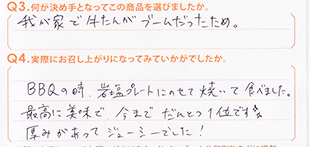 Q3.何が決め手となってこの商品を選びましたか。
我が家で牛たんがブームだったため。
Q4.実際にお召し上がりになってみていかがでしたか。
BBQの時、岩塩プレートにのせて焼いて食べました。
最高に美味で、今までだんとつ1位です
厚みがあってジューシーでした!